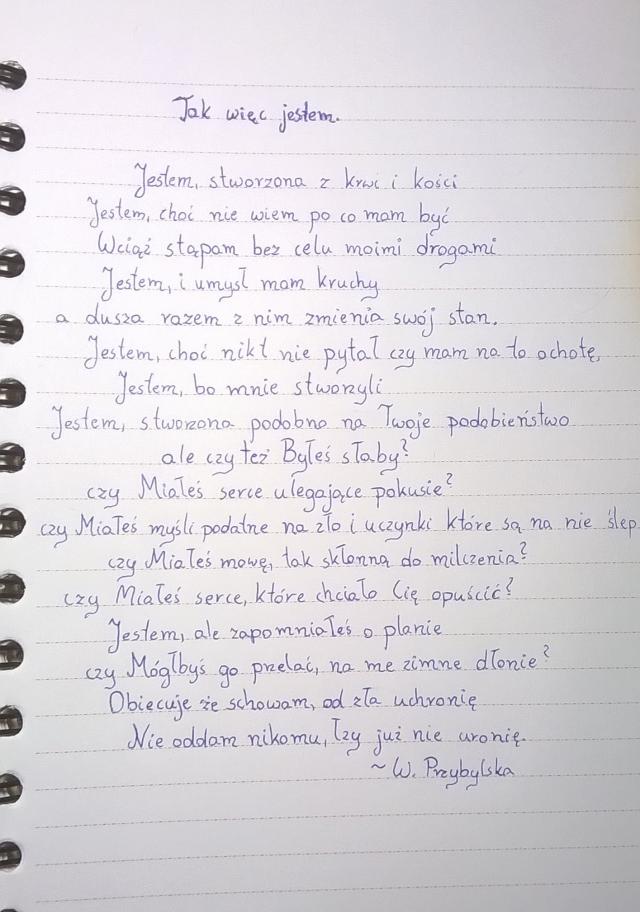 Tak więc jestem.
Jestem, stworzona z krwi i kości
Jestem, choć nie wiem po co mam być
Wciąż stąpam bez celu moimi drogami
Jestem, i umysł mam kruchy
a dusza razem z nim zmienia swój stan.
Jestem, choć nikt nie pytał czy mam na to ochotę,
Jestem, bo mnie stworzyli
Jestem, stworzona podobno na Twoje podobieństwo
ale czy też Byłeś słaby?
czy Miałeś serce ulegające pokusie?
czy Miałeś myśli podatne na zło i uczynki które są na nie ślep
czy Miałeś mowę, tak skłonną do milczenia?
czy Miałeś serce, które chciało Cię opuścić?
Jestem, ale zapomniałeś o planie
czy Mógłbyś go przelać, na me zimne dłonie?
Obiecuje że schowam, od zła uchronię
Nie oddam nikomu, łzy już nie uronię.
~ W. Przybylska